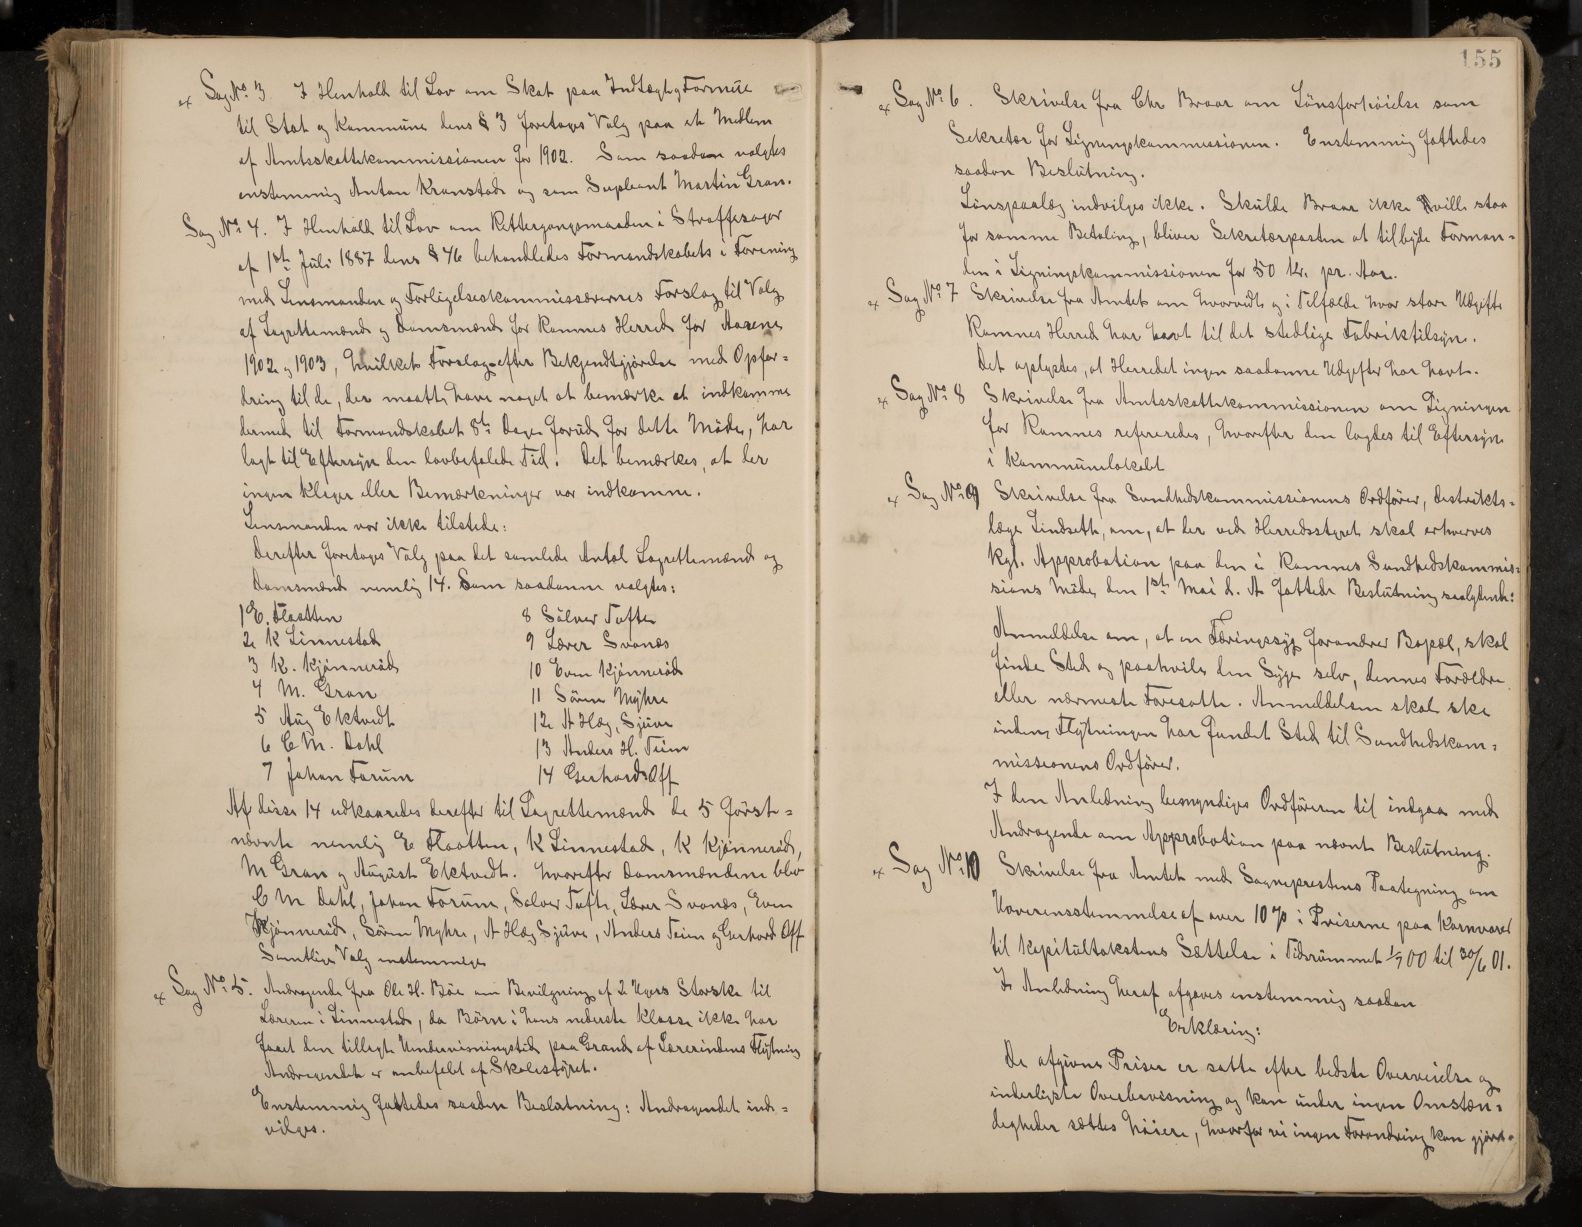 x Sag No 3. I Henhold til Lov om Skat paa Indtægt og Formue
til Stat og Kommune dens § 3 foretoges Valg paa et Medlem
af Amtsskattekommissionen for 1902. Som saadan valgtes
enstemmig Anton Kronstad og som Supleant Martin Gran.
Sag No 4. I Henhold til Lov om Rettergangsmaaden i Straffesager
af 1st Juli 1887 dens § 46 behandledes Formandskabets i Forening
med Lensmanden og Forligelseskommissærernes Forslag til Valg
af Lagrettemænd og Domsmænd for Ramnes Herred for Aarene
1902 og 1903, hvilket Forslag efter Bekjendtgjørelse med Opfor=
dring til de, der maatte have noget at bemærke at indkomme
dermed til Formandskabet 8te Dage forud for dette Møde, har
lagt til Eftersyn den lovbefalede Tid. Det bemærkes, at der
ingen Klager eller Bemærkninger var indkomne.
Lensmanden var ikke tilstede:
Derefter foretoges Valg paa det samlede Antal Lagrettemænd og
Domsmænd nemlig 14. Som saadanne valgtes:
1 E. Flaatten
2 K Linnestad
3 K. Kjønnerød
4 M. Gran
5 Aug Ektvedt
6 C M. Dahl
7 Johan Forum
8 Sølver Tufte
9 Lærer Svonæs
10 Even Kjønnerød
11 Søren Myhre
12 A Hæg, Sjuve
13 Anders H. Teien
14 Gerhard Off
Af disse 14 udkaaredes derefter til Lagrettemænd de 5 først=
nævnte nemlig E Flaatten, K Linnestad, K Kjønnerød,
M Gran og August Ektvedt. Hvorefter Domsmændene blev
C M Dahl, Johan Forum, Sølver Tufte, Lærer Svonæs, Even
Kjønnerød, Søren Myhre, A Hæg Sjuve, Anders Teien og Gerhard Off
Samtlige Valg enstemmige
x Sag No 5. Andragende fra Ole H. Bøe om Bevilgning af 2 Ugers Storskole til
Læreren i Linnestad, da Børn i hans nederste Klasse ikke har
faaet den tillagte Undervisningstid paa Grund af Lærerindens Flytning
Andragendet er anbefalet af Skolestyret.
Enstemmig fattedes saadan Beslutning: Andragendet ind=
vilges.
155
x Sag No 6. Skrivelse fra Chr Braar om Lønsforhøielse som
Sekretær for Ligningskommissionen. Enstemmig fattedes
saadan Beslutning.
Lønspaalæg indvilges ikke. Skulde Braar ikke ville staa
for samme Betaling, bliver Sekretærposten at tilbyde Forman=
den i Ligningskommissionen for 50 Kr. pr. Aar.
x Sag No 7 Skrivelse fra Amtet om hvorvidt og i Tilfælde hvor store Udgifter
Ramnes Herred har havt til det stedlige Fabriktilsyn.
Det oplystes, at Herredet ingen saadanne Udgifter har havt.
x Sag No 8 Skrivelse fra Amtsskattekommissionen om Ligningen
for Ramnes refereredes, hvorefter den lagdes til Eftersyn
i Kommunelokalet
x Sag No 9 Skrivelse fra Sundhedskommissionens Ordfører, Distrikts=
læge Lindseth, om, at der ved Herredsstyret skal erhverves
Kgl. Approbation paa den i Ramnes Sundhedskommis=
sions Møde den 1st Mai d. A fattede Beslutning saalydende:
Anmeldelse om, at en Tæringssyg forandrer Bopæl, skal
finde Sted og paahvile den Syge selv, dennes Forældre
eller nærmeste Foresatte. Anmeldelsen skal ske
inden Flytningen har fundet Sted til Sundhedskom=
missionens Ordfører.
I den Anledning bemyndiges Ordføreren til indgaa med
Andragende om Approbation paa nævnte Beslutning.
x Sag No 10 Skrivelse fra Amtet med Sogneprestens Paategning om
Uoverensstemmelse af over 10% i Priserne paa Kornvarer
til Kapitultakstens Sættelse i Tidsrummet 1/7 00 til 30/6 01.
I Anledning heraf afgaves enstemmig saadan
Erklæring:
De afgivne Priser er satte efter bedste Overveielse og
inderligste Overbevisning og kan under ingen Omstæn=
digheder sættes høiere, hvorfor vi ingen Forandring kan gjøre.